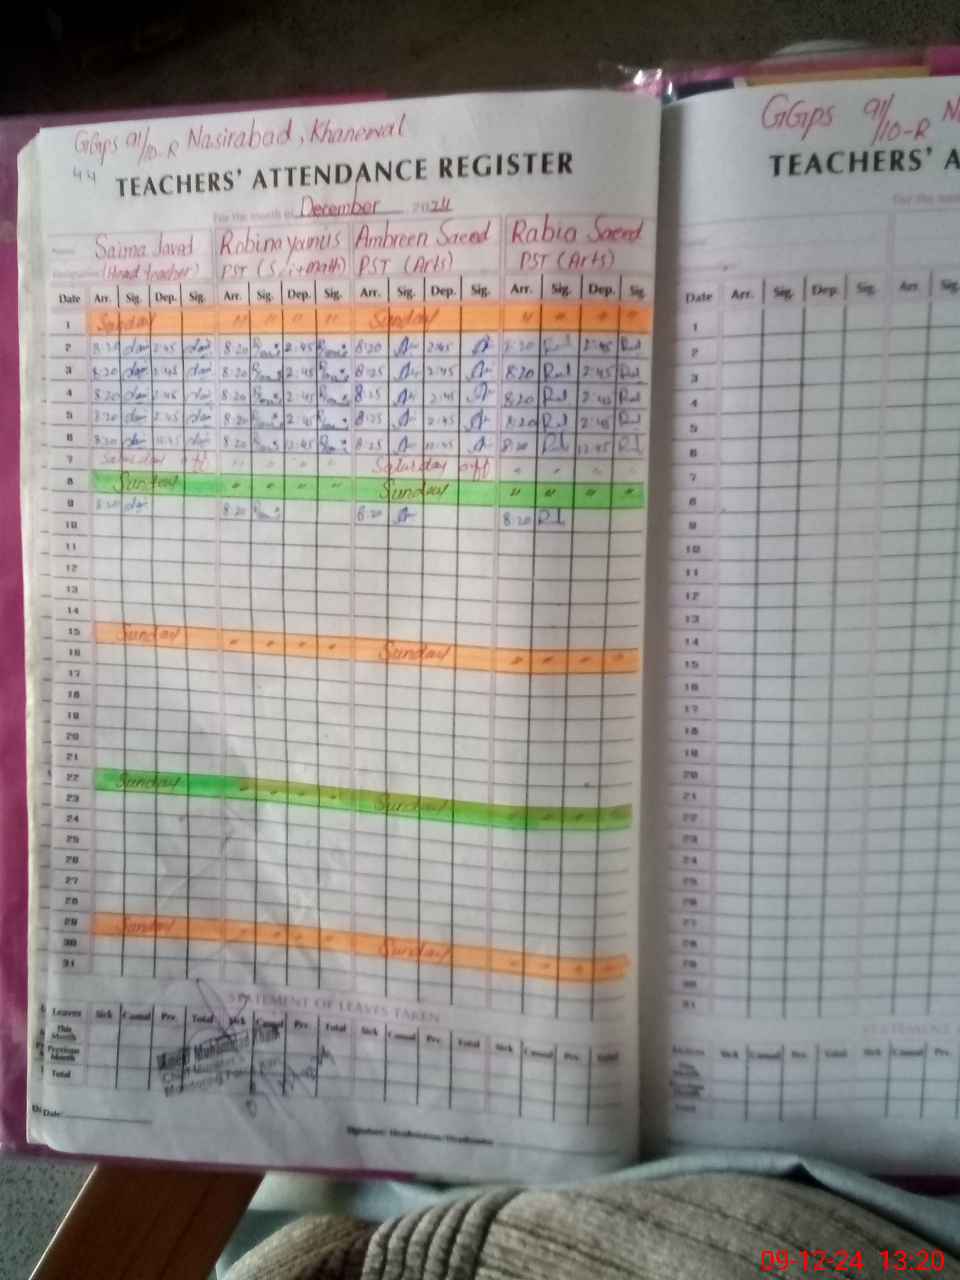 GGPS 91/10-R Nasirabad, Khanewal
44
TEACHERS' ATTENDANCE REGISTER
For the month of December 2024
Saima Javed Robina Yanus Ambreen Saeed Rabia Saeed
(Head teacher) PST (S/i+math) PST (Arts) PST (Arts)
Date Arr. Sig. Dep. Sig. Arr. Sig. Dep. Sig. Arr. Sig. Dep. Sig. Arr. Sig. Dep. Sig.
1 Sunday " " " " Sunday " " " "
2 8:20 2:45 8:20 2:45 8:20 2:45 8:20 2:45
3 8:20 2:45 8:20 2:45 8:25 2:45 8:20 2:45
4 8:20 2:45 8:20 2:45 8:25 2:45 8:20 2:45
5 8:20 2:45 8:20 2:45 8:25 2:45 8:20 2:45
6 8:20 12:45 8:20 12:45 8:25 12:45 8:20 12:45
7 Saturday off " " " " Saturday off " " " "
8 Sunday " " " " Sunday " " " "
9 8:20 8:20 8:20 8:20
10
11
12
13
14
15 Sunday " " " " Sunday " " " "
16
17
18
19
20
21
22 Sunday " " " " Sunday " " " "
23
24
25
26
27
28
29 Sunday " " " " Sunday " " " "
30
31
STATEMENT OF LEAVES TAKEN
Leaves Sick Casual Prv. Total Sick Casual Prv. Total Sick Casual Prv. Total Sick Casual Prv. Total
This Month
Previous Month
Total
Muhammad
Date
Signature: Headmistress/Headmaster
GGPS 91/10-R
TEACHERS' A
Date Arr. Sig. Dep. Sig. Arr. Sig.
1
2
3
4
5
6
7
8
9
10
11
12
13
14
15
16
17
18
19
20
21
22
23
24
25
26
27
28
29
30
31
STATEMENT
Sick Casual Prv. Total Sick Casual Prv.
09-12-24 13:20